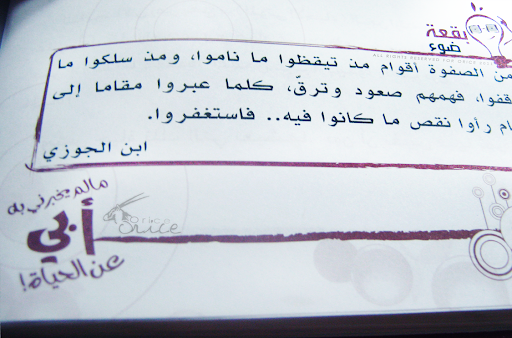 بقعة
ضوء
من الصفوة أقوام مذ تيقظوا ما ناموا، ومذ سلكوا ما
قفوا، فهمهم صعود وترقّ، كلما عبروا مقاما إلى
ام رأوا نقص ما كانوا فيه.. فاستغفروا.
ابن الجوزي
مالم يخبرني به
أبي
عن الحياة!